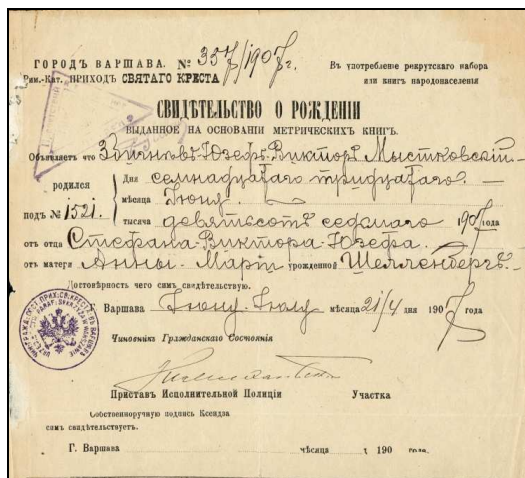 ГОРОДЪ ВАРШАВА. № 357/1907 г.
Въ употребленіе рекрутскаго набора
Рим.-Кат. ПРИХОДЪ СВЯТАГО КРЕСТА
или книгъ народонаселенія
СВИДѢТЕЛЬСТВО О РОЖДЕНІИ
ВЫДАННОЕ НА ОСНОВАНІИ МЕТРИЧЕСКИХЪ КНИГЪ.
Объявляетъ что Юзефъ-Викторъ Мыстковскій
родился
Дня семнадцатаго тридцатаго.
мѣсяца Іюну.
подъ № 1521.
тысяча девятьсотъ седьмаго 1907 года
отъ отца Стефана-Виктора-Юзефа.
отъ матери Анны-Маріи урожденной Шелленбергъ
Достовѣрность чего симъ свидѣтельствую.
Варшава Іюну-Іюлу мѣсяца 21/4 дня 1907 года
Чиновникъ Гражданскаго Состоянія
Приставъ Исполнительной Полиціи Участка
Собственноручную подпись Ксендза
симъ свидѣтельствуетъ.
Г. Варшава мѣсяца 190 года